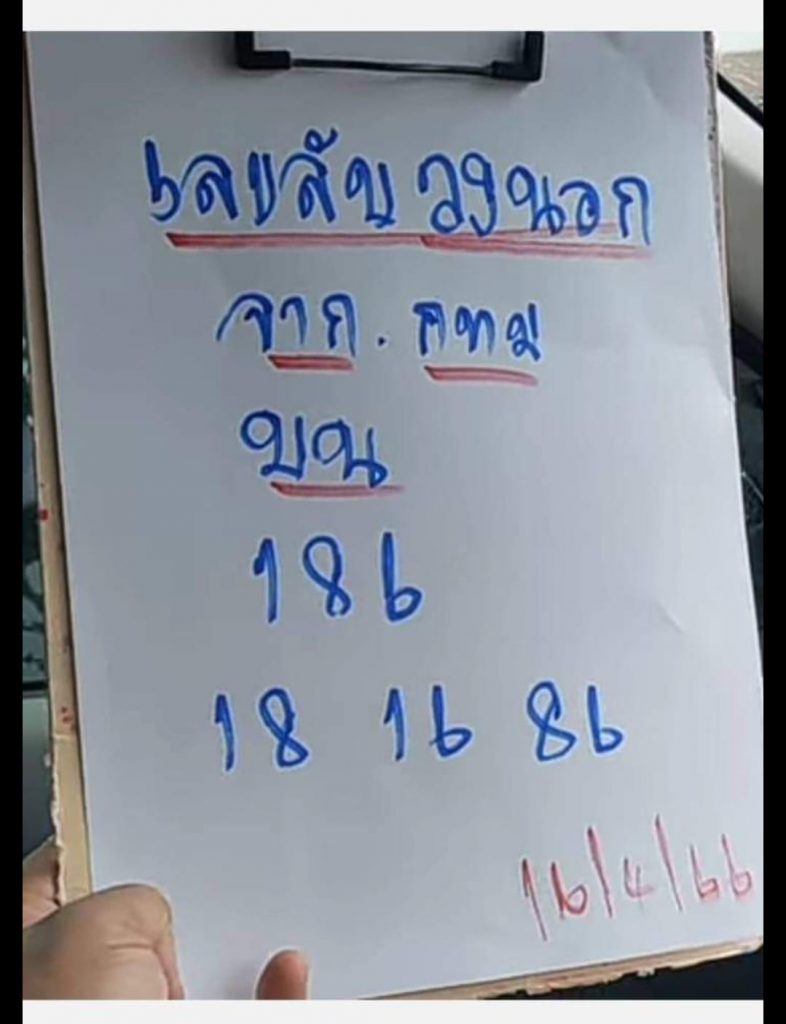 เลขลับวงนอก
จาก. กทม
บน
186
18 16 86
16/4/66